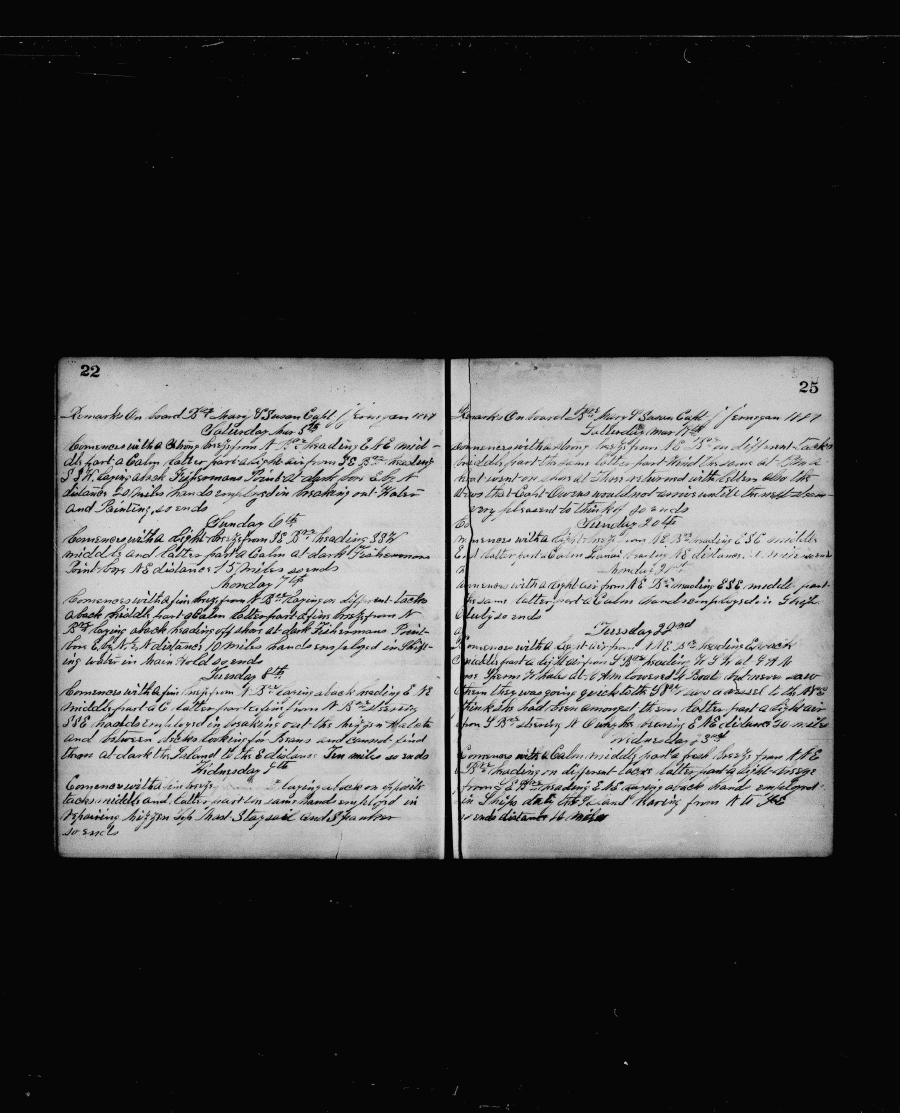 22
Remarks On board Bqe Mary & Susan Capt J Jernegan 1887
Saturday Mar 5th
Comences with a Strong breeze from N Bqe heading ENE mid-
dle part a Calm latter part a light air from SE Bqe heading
SSW laying aback Fishermans Point at dark bore E by N
distance 20 miles hands employed in breaking out Water
and Painting so ends
Sunday 6th
Comences with a light breeze from SE Bqe heading SSW
middle and latter part a Calm at dark Fishermans
Point bore NE distance 15 miles so ends
Monday 7th
Comences with a fine breeze from N Bqe laying on different tacks
aback middle part a Calm latter part a fine breeze from N
Bqe laying aback heading off shore at dark Fishermans Point
bore E by N distance 10 miles hands employed in Shift-
ing water in Main Hold so ends
Tuesday 8th
Comences with a fine breeze from N Bqe laying aback heading E NE
middle part a C latter part a fine from N Bqe steering
SSE hands employed in breaking out the mizzen
and between decks looking for Beans and cannot find
them at dark the Island to the E distance Ten miles so ends
Wednesday 9th
Comences with a fine breeze laying aback on opposite
tacks middle and latter part the same hands employed in
repairing mizzen Top Mast Staysail and Spanker
so ends
25
Remarks On board Bqe Mary & Susan Capt J Jernegan 1887
Saturday Mar 19th
Comences with a strong breeze from NE Bqe on different tacks
middle part the same latter part the same at
boat went on shore at returned with letters also the
news that Capt Owens would not arrive until the next Steam-
very pleasent to think of so ends
Sunday 20th
Comences with a light breeze from NE Bqe heading ESE middle
latter part a Calm bearing NE distance
Monday 21st
Comences with a light air from NE Bqe heading ESE middle part
the same latter part a Calm hands employed in Ships
Duty so ends
Tuesday 22nd
Comences with a light air from NE Bqe heading E
middle part a light air from S Bqe heading WSW at
Sperm Whales at AM lowered 4 Boats but never saw
them they was going quick to the saw a vessel to the
think she had been amongst them latter part a light air
from S Bqe steering N bearing ENE distance 30 miles
Wednesday 23rd
Comences with a Calm middle part a fresh breeze from NNE
Bqe heading on different tacks latter part a light breeze
from heading ENE laying aback hands employed
in Ships and from N to
so ends distance 14 miles